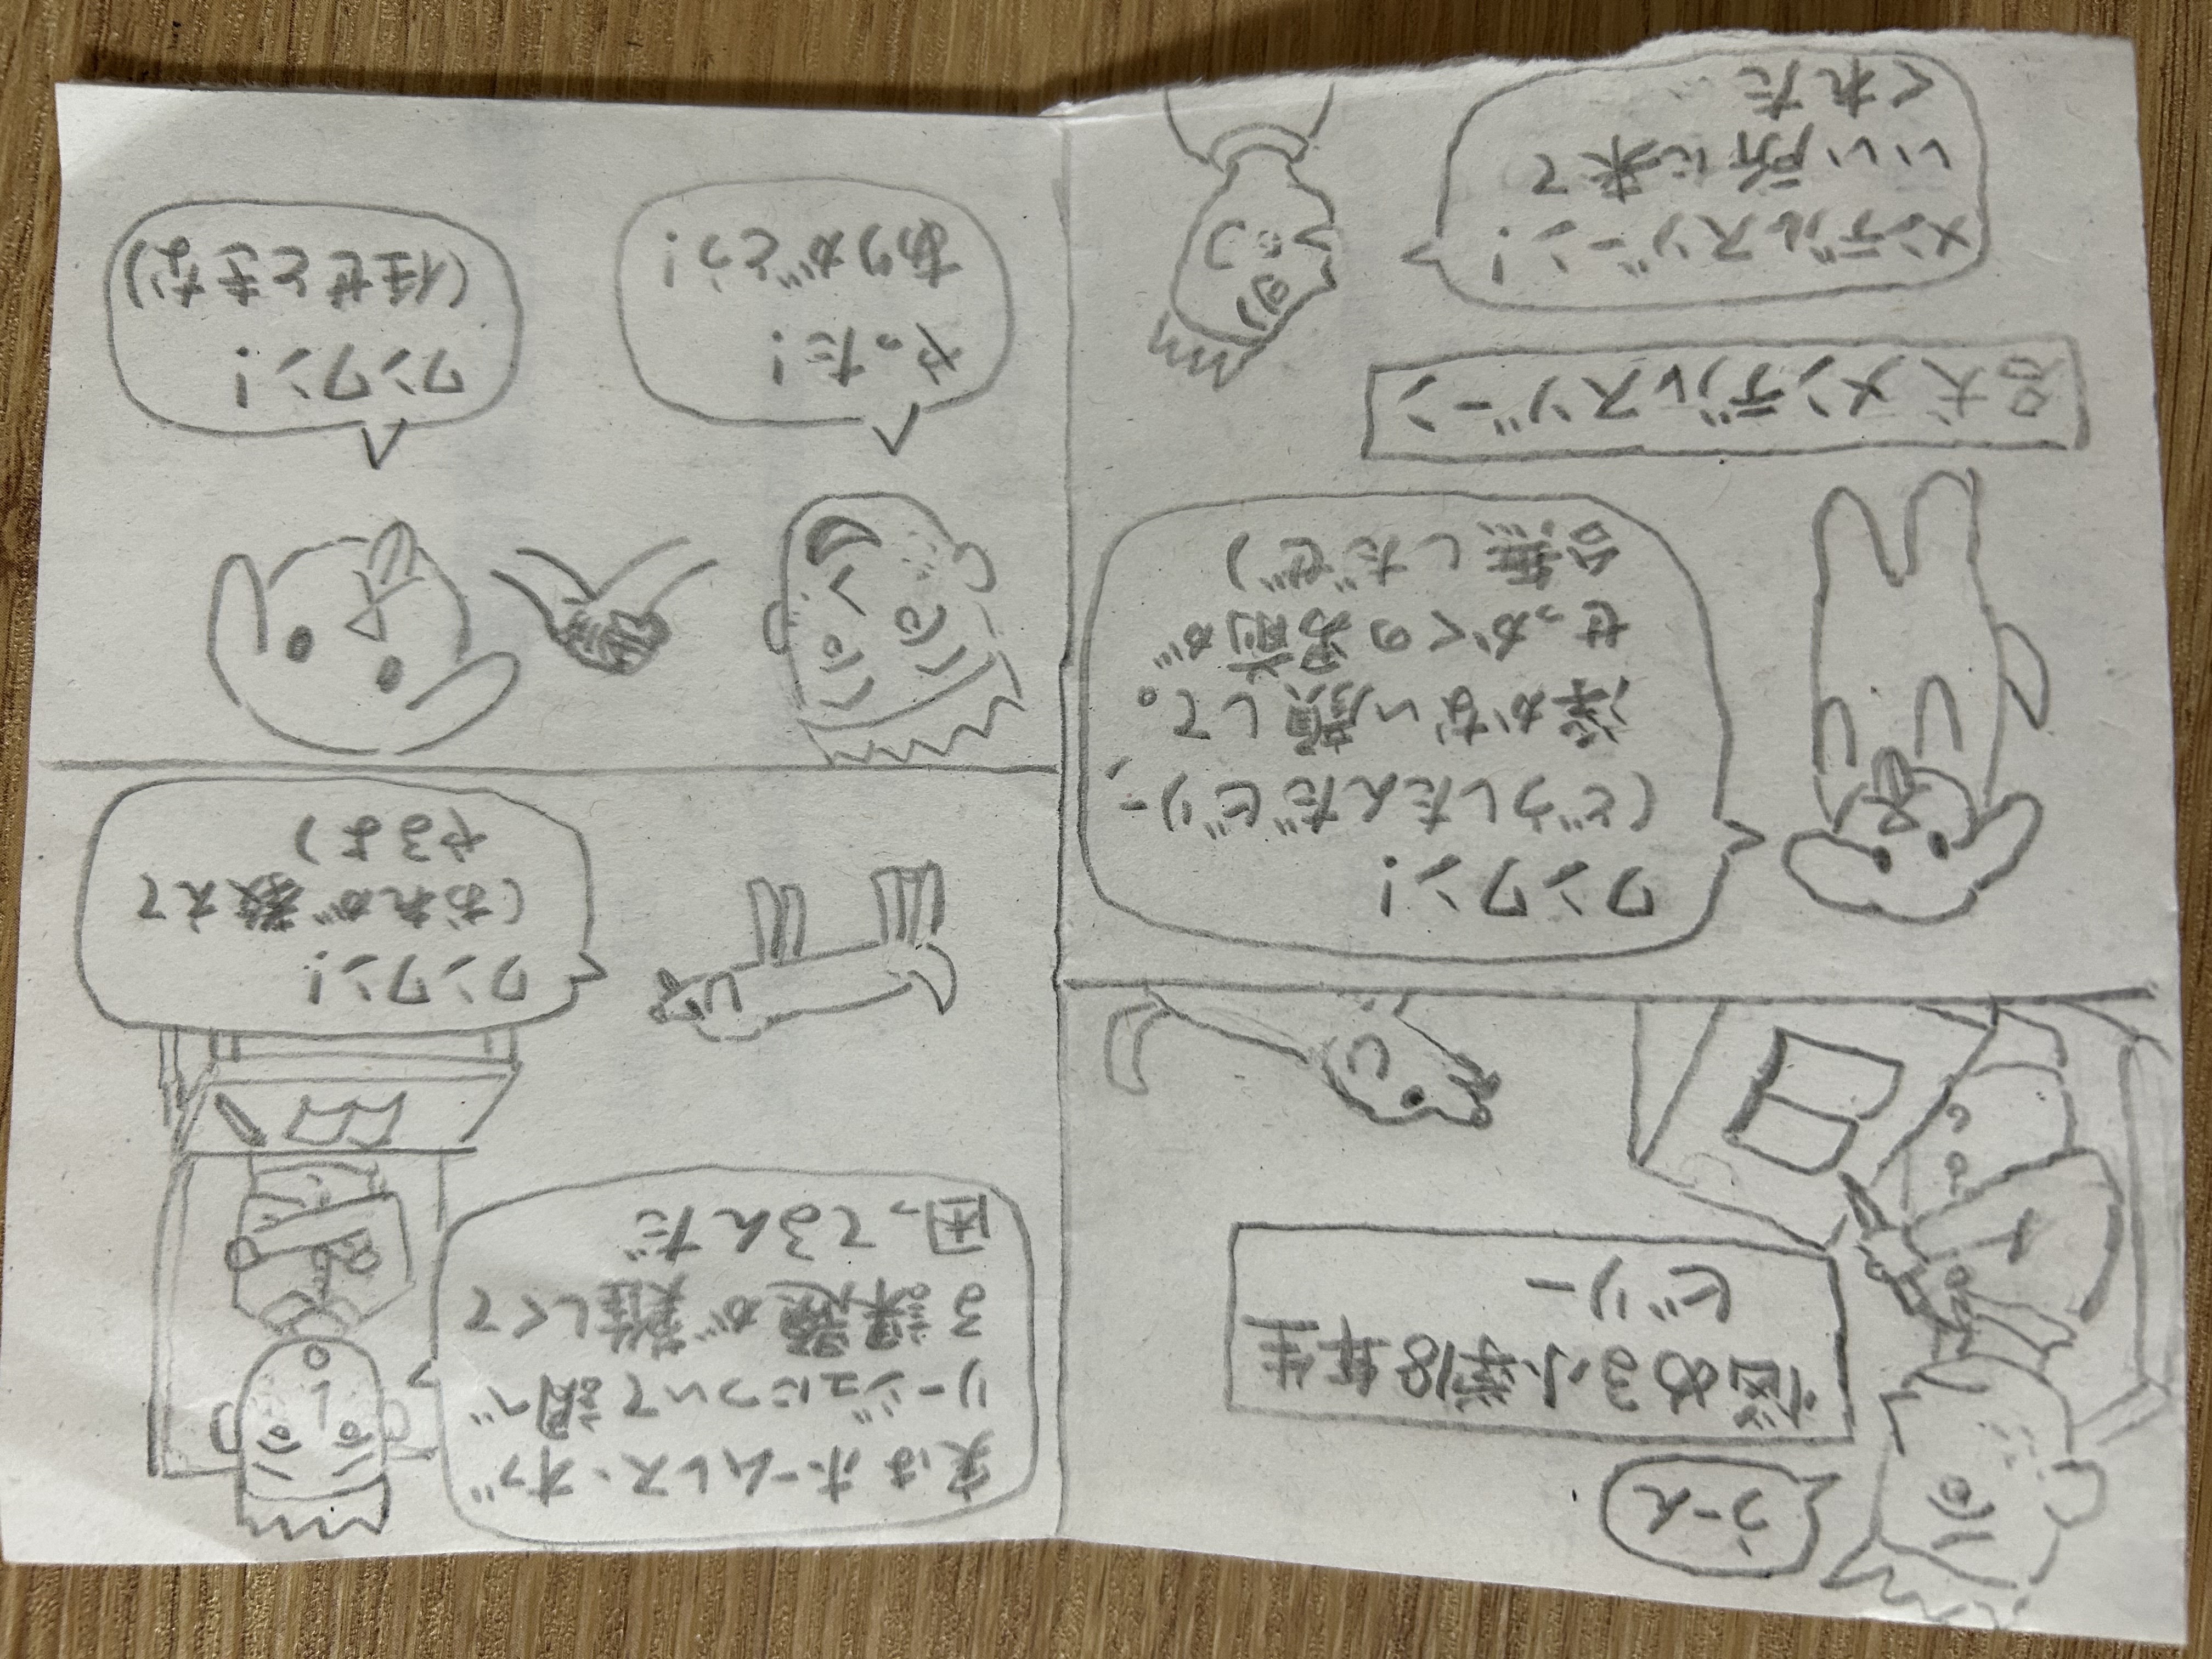 うーん
悩める小学18年生
ビリー
ワンワン!
(どうしたんだビリー、
浮かない顔して。
せっかくの男前が
台無しだぜ)
名犬 メンデルスゾーン
メンデルスゾーン!
いい所に来て
くれた
実はホームレス・オブ
リージュについて調べ
る課題が難しくて
困ってるんだ
ワンワン!
(おれが教えて
やるよ)
やった!
ありがとう!
ワンワン!
(任せときな)